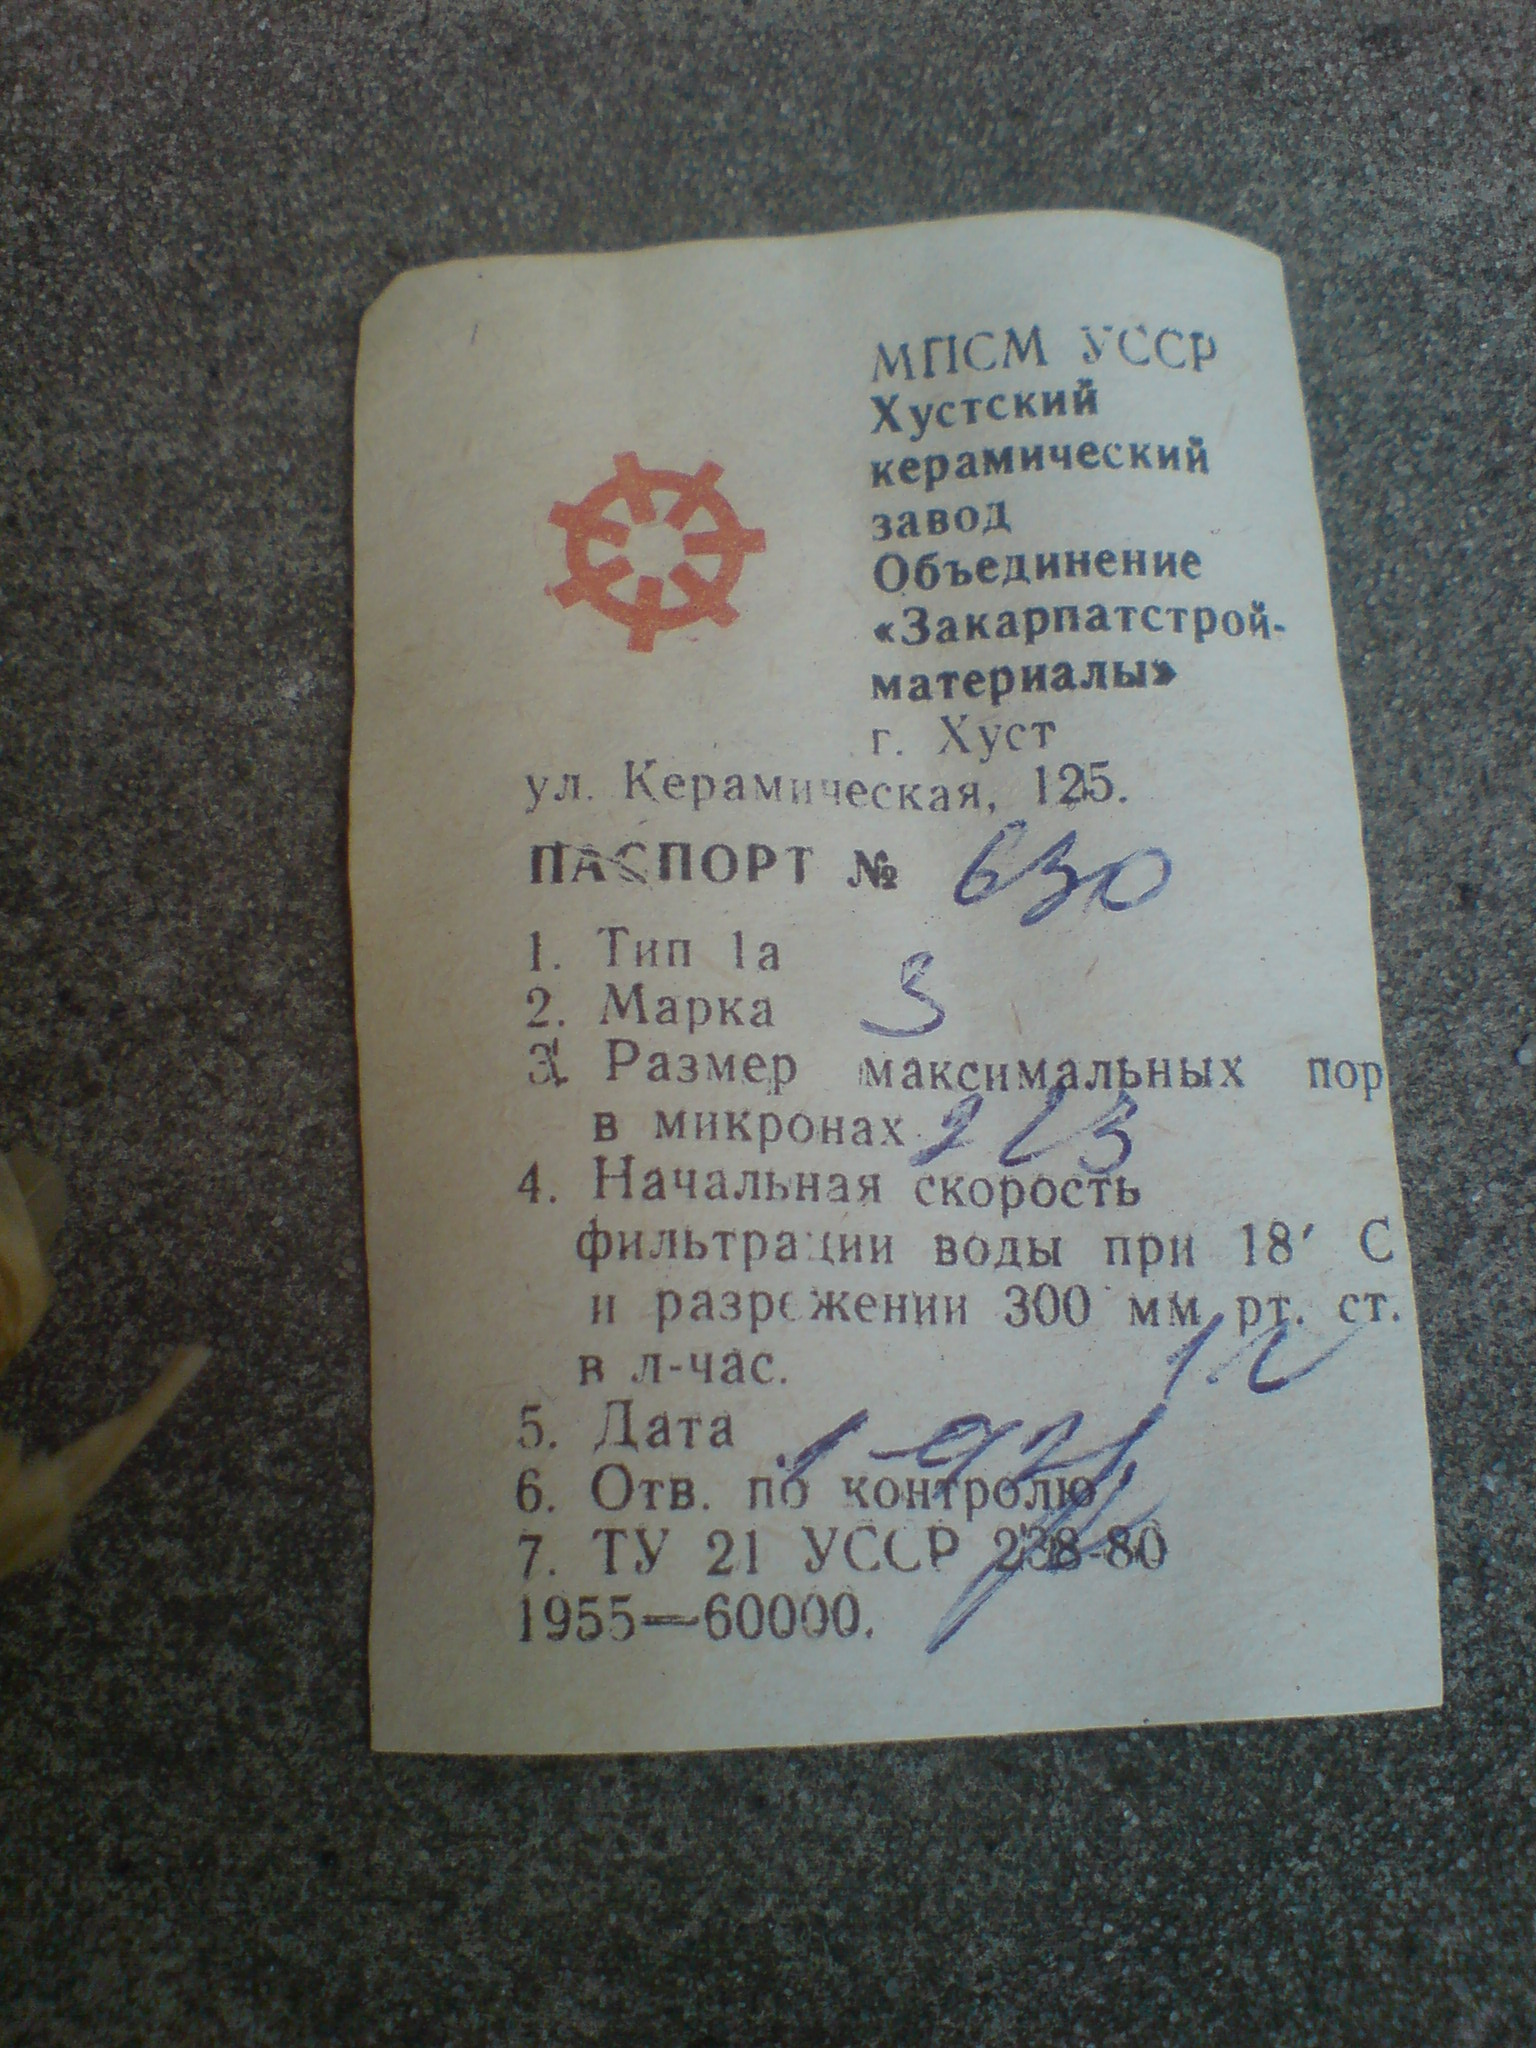 МПСМ УССР
Хустский
керамический
завод
Объединение
«Закарпатстрой-
материалы»
г. Хуст
ул. Керамическая, 125.
ПАСПОРТ № 630
1. Тип 1а
2. Марка 3
3. Размер максимальных пор
в микронах
4. Начальная скорость
фильтрации воды при 18′ С
и разрежении 300 мм рт. ст.
в л-час.
5. Дата
6. Отв. по контролю
7. ТУ 21 УССР 238-80
1955—60000.